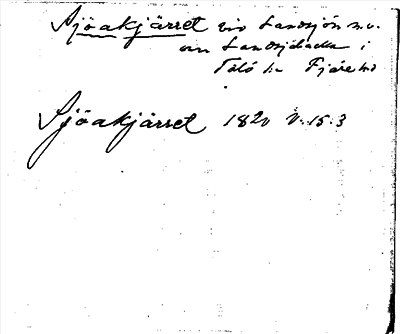 Sjöakjärret vid Landsjön n.v.
om Landsjöbacka i
Tölö sn Fjäre hd
Sjöakjärret 1820 V. 15. 3